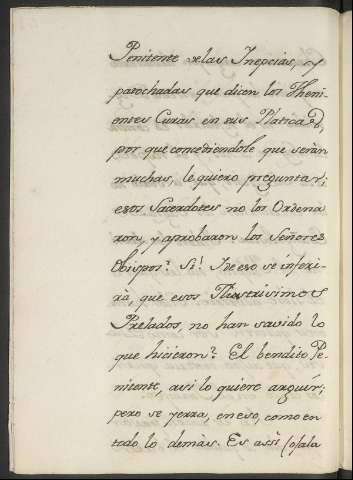 Penitente de las Inepcias, y
patochadas que dicen los Theni-
entes Curas en sus Platicas,
por que concediendole que seràn
muchas, le quiero preguntar;
esos Sacerdotes no los Ordena
ron, y aprobaron los Señores
Obispos? Si! Y de eso se inferi-
rà, que esos Illustrisimos
Prelados, no han savido lo
que hicieron? El bendito Pe-
nitente, asi lo quiere arguir;
pero se yerra, en eso, como en
todo lo demàs. Es assi (ojala